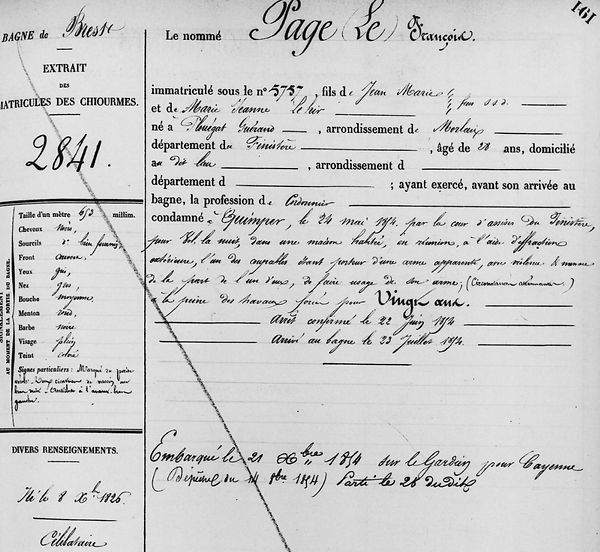 161
BAGNE de Brest
EXTRAIT
DES
MATRICULES DES CHIOURMES.
2841.
Taille d'un mètre 653 millim.
Cheveux noirs,
Sourcils d° bien fournis,
Front couvert,
Yeux gris,
Nez gros,
Bouche moyenne,
Menton rond,
Barbe noire
Visage plein
Teint coloré
Signes particuliers : Marqué de petite
vérole. Deux cicatrices de
bras gauche
SIGNALEMENT
AU MOMENT DE LA SORTIE DU BAGNE.
DIVERS RENSEIGNEMENTS.
Né le 8 Xbre 1826
Célibataire
Le nommé Page (Le) François.
immatriculé sous le n° 5757, fils de Jean Marie
et de Marie Jeanne Le hir feus s.s.d.
né à Plouégat Guérand, arrondissement de Morlaix
département du Finistère, âgé de 28 ans, domicilié
au dit lieu, arrondissement d
département d ; ayant exercé, avant son arrivée au
bagne, la profession de Cordonnier
condamné à Quimper, le 24 mai 1854, par la cour d'assises du Finistère,
pour Vol, la nuit, dans une maison habitée, en réunion, à l'aide d'effraction
extérieure, l'un des coupables étant porteur d'une arme apparente, avec violence & menace
de la part de l'un d'eux, de faire usage de son arme, (Circonstances atténuantes)
à la peine des travaux forcés pour Vingt ans.
Arrêt confirmé le 22 Juin 1854
Arrivé au bagne le 23 Juillet 1854.
Embarqué le 21 Xbre 1854 sur le Gardien pour Cayenne
(Dépêche du 14 8bre 1854) Parti le 28 dudit